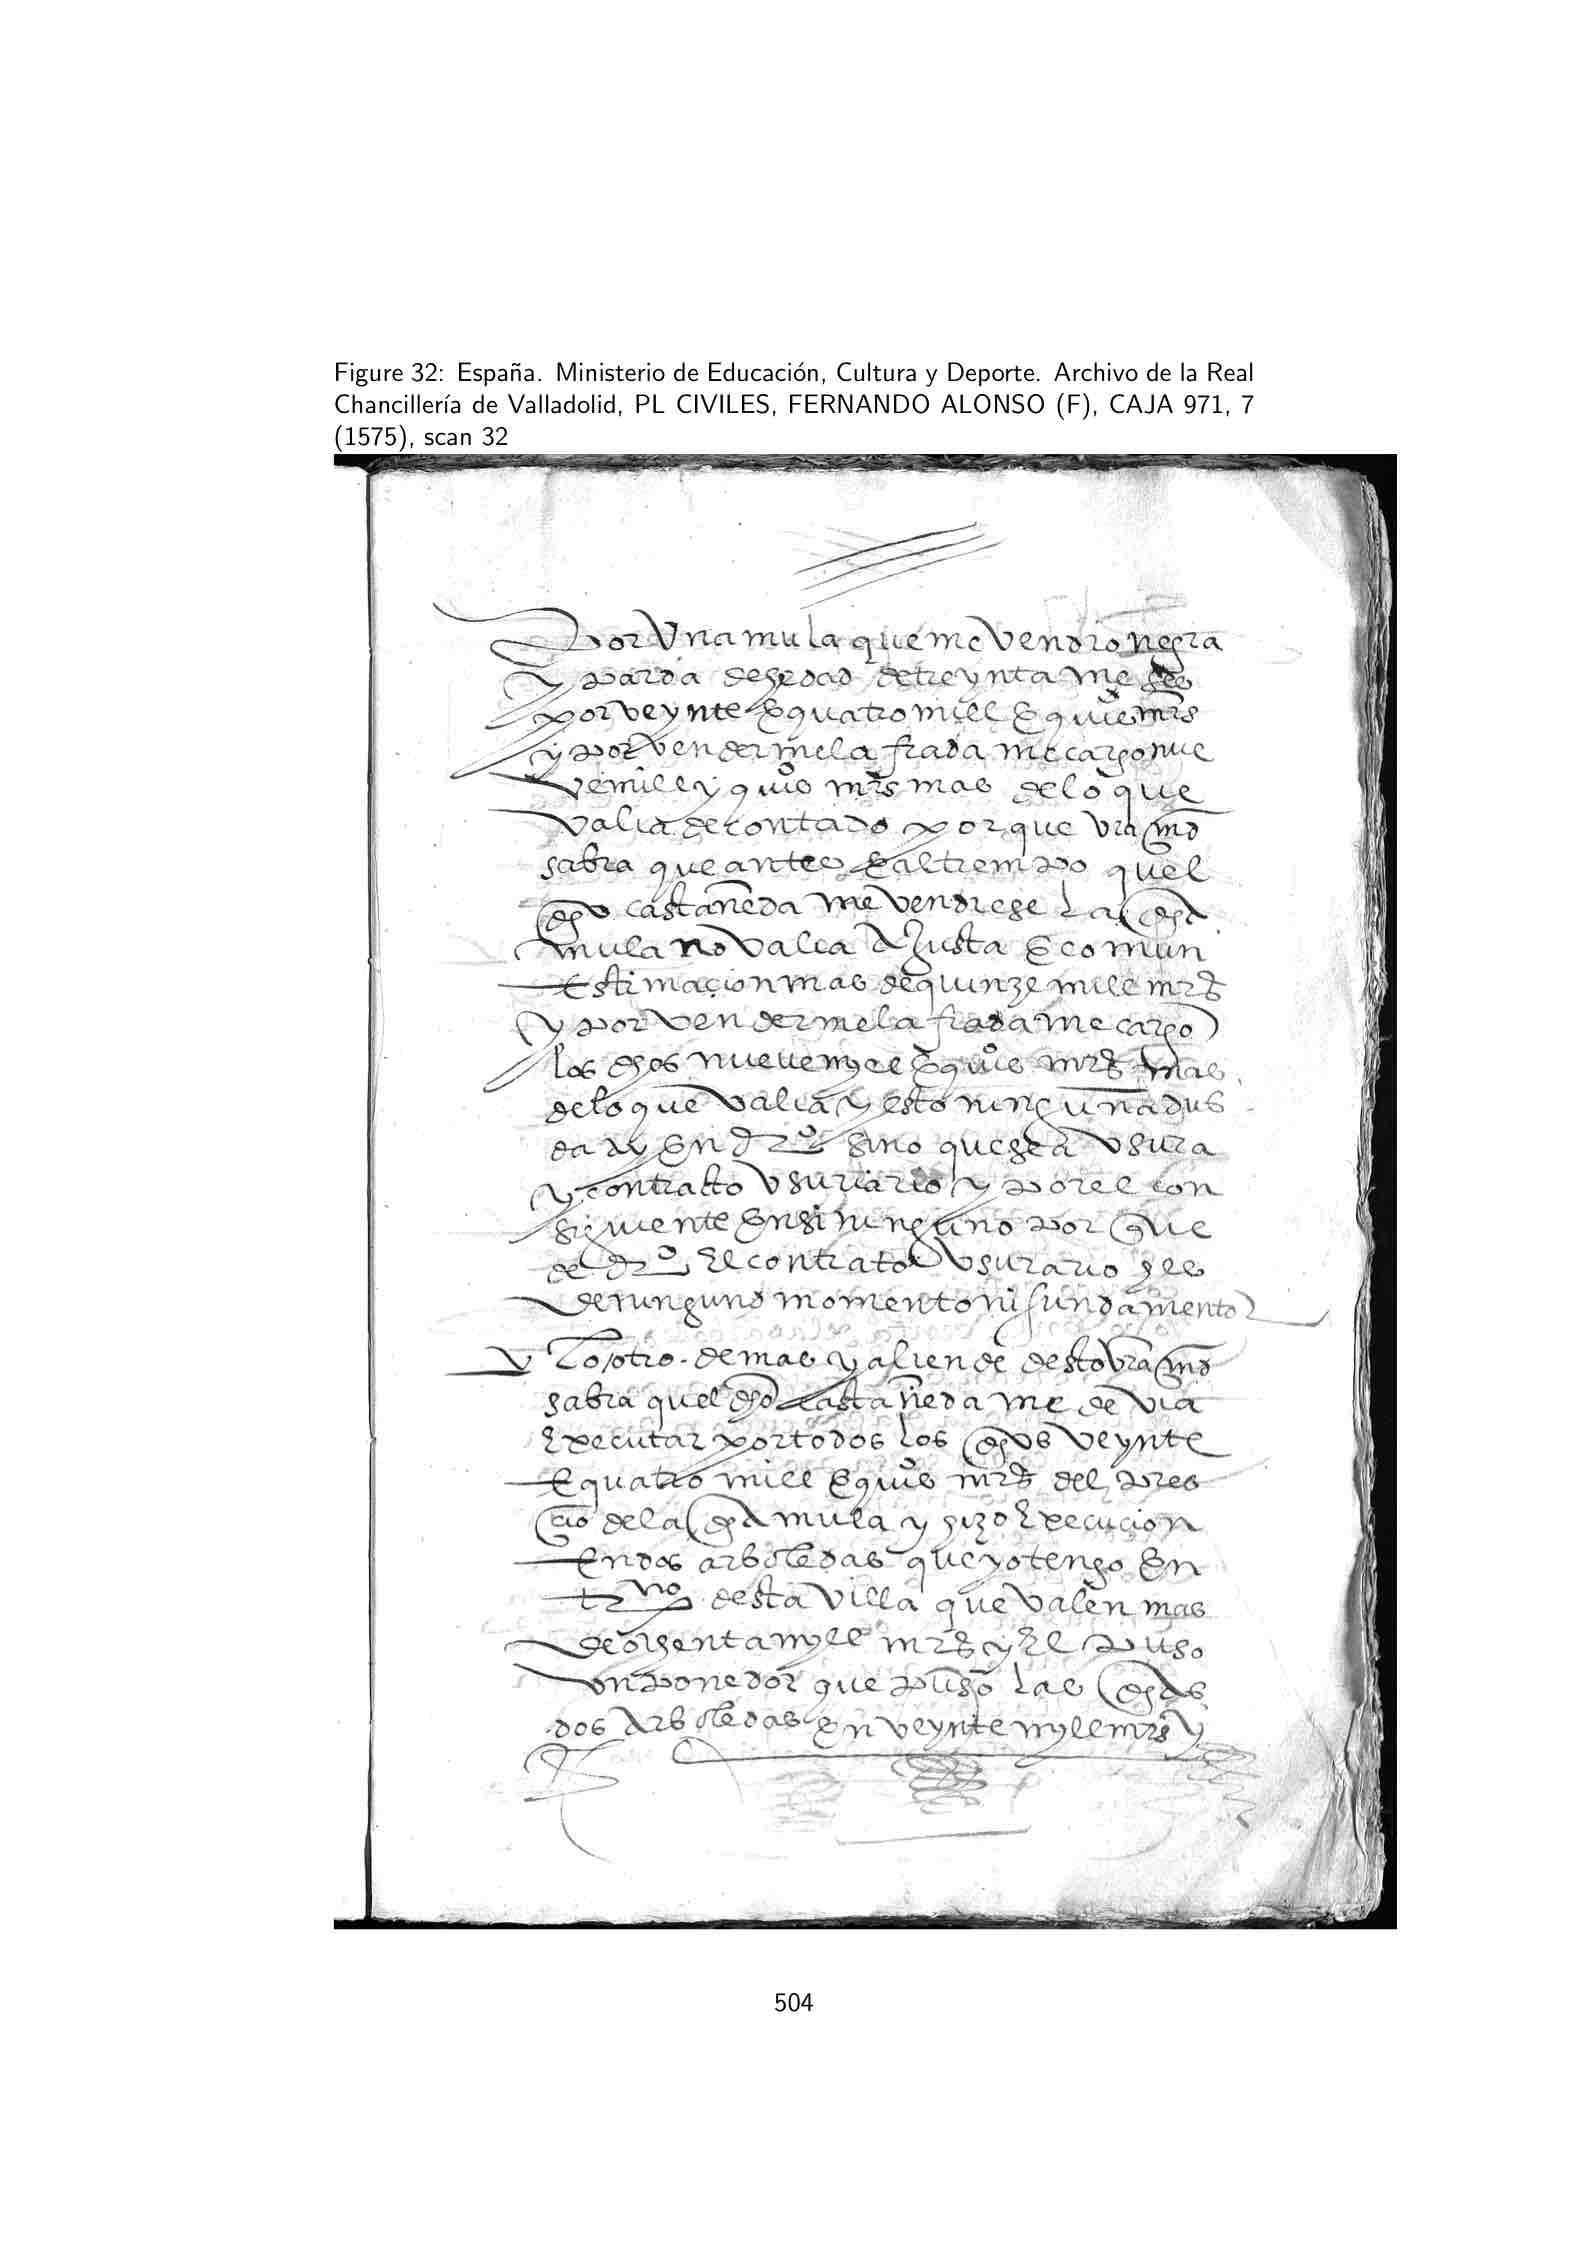 Figure 32: España. Ministerio de Educación, Cultura y Deporte. Archivo de la Real
Chancillería de Valladolid, PL CIVILES, FERNANDO ALONSO (F), CAJA 971, 7
(1575), scan 32
Por Una mula que me Vendio negra
y parda de hedad de treynta meses
por veynte E quatro mill E quios mrs
y por vendermela fiada me cargo nue
ve mill y quios mrs mas de lo que
valia de contado porque vra md
sabra que antes E al tiempo quel
dho castañeda me vendiese La dha
mula no valia A Justa E comun
Estimaçion mas de quinze mill mrs
y por vendermela fiada me cargo
los dhos nueve myll E quios mrs mas
de lo que valia y esto ninguna dub
da ay En dro sino que sea usura
y contrato Usuriario y por el con
siguiente En si ninguno por que
de dro El contrato Usurario hes
de ninguno momento ni fundamento
Lo otro demas y aliende desto vra md
sabra quel dho castañeda me devia
Executar por todos los dhos veynte
E quatro mill E quios mrs del pres
cio de la dha mula y hizo Execucion
En dos arboledas que yo tengo En
trno desta villa que valen mas
de ochenta myll mrs y El puso
un ponedor que puso las dhas
dos Arboledas En veynte myll mrs y
504